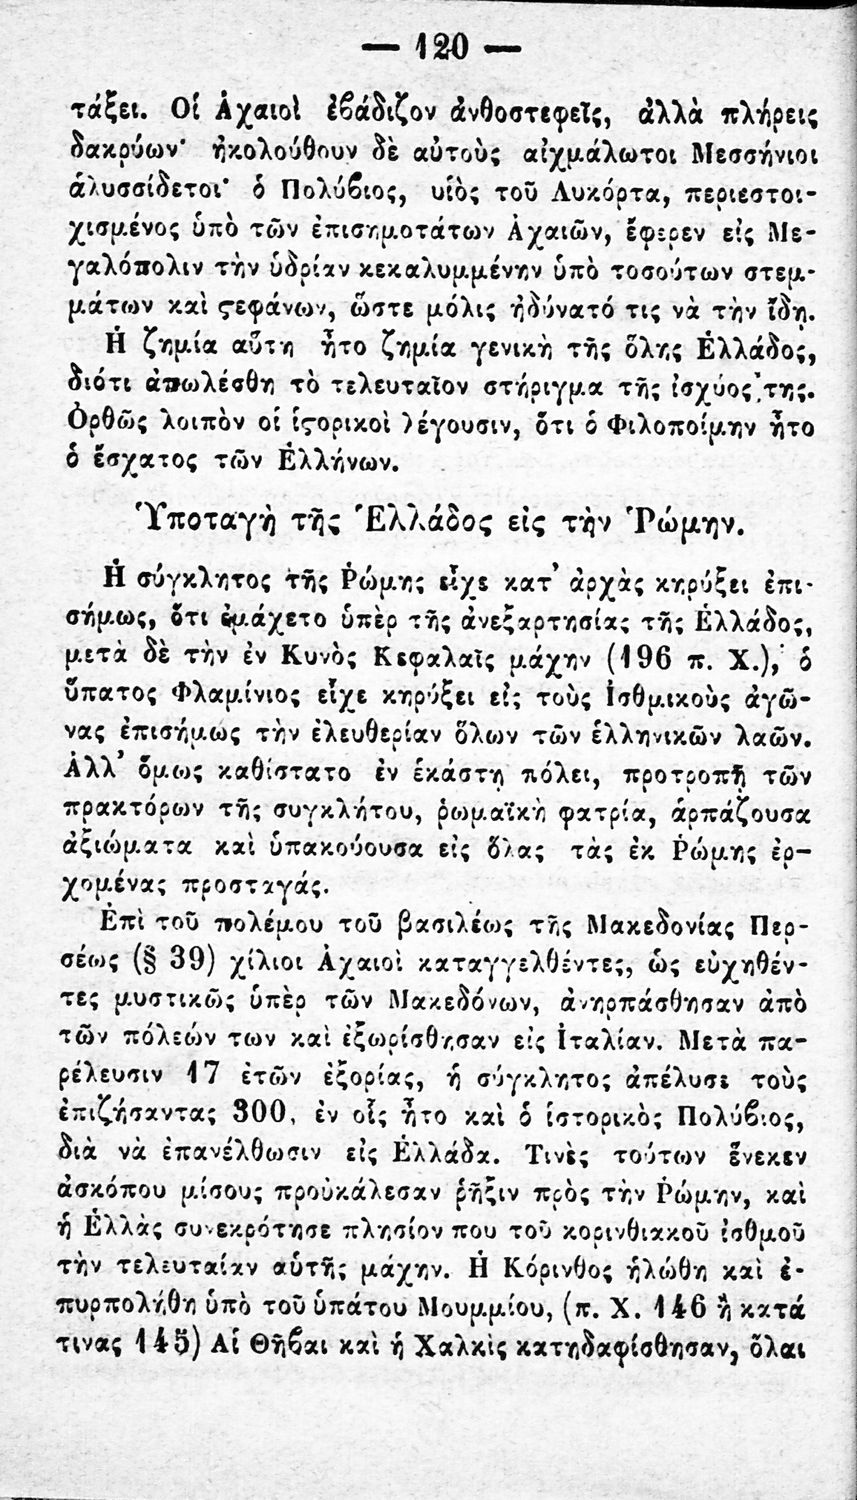 — 120 —
τάξει. Οἱ Ἀχαιοὶ ἐβάδιζον ἀνθοστεφεῖς, ἀλλὰ πλήρεις
δακρύων· ἠκολούθουν δὲ αὐτοὺς αἰχμάλωτοι Μεσσήνιοι
ἁλυσσίδετοι· ὁ Πολύβιος, υἱὸς τοῦ Λυκόρτα, περιεστοι-
χισμένος ὑπὸ τῶν ἐπισημοτάτων Ἀχαιῶν, ἔφερεν εἰς Με-
γαλόπολιν τὴν ὑδρίαν κεκαλυμμένην ὑπὸ τοσούτων στεμ-
μάτων καὶ ϛεφάνων, ὥστε μόλις ἠδύνατό τις νὰ τὴν ἴδῃ.
Ἡ ζημία αὕτη ἦτο ζημία γενικὴ τῆς ὅλης Ἑλλάδος,
διότι ἀπωλέσθη τὸ τελευταῖον στήριγμα τῆς ἰσχύος της.
Ὀρθῶς λοιπὸν οἱ ἱϛορικοὶ λέγουσιν, ὅτι ὁ Φιλοποίμην ἦτο
ὁ ἔσχατος τῶν Ἑλλήνων.
Ὑποταγὴ τῆς Ἑλλάδος εἰς τὴν Ῥώμην.
Ἡ σύγκλητος τῆς Ῥώμης εἶχε κατ' ἀρχὰς κηρύξει ἐπι-
σήμως, ὅτι ἐμάχετο ὑπὲρ τῆς ἀνεξαρτησίας τῆς Ἑλλάδος,
μετὰ δὲ τὴν ἐν Κυνὸς Κεφαλαῖς μάχην (196 π. Χ.), ὁ
ὕπατος Φλαμίνιος εἶχε κηρύξει εἰς τοὺς Ἰσθμικοὺς ἀγῶ-
νας ἐπισήμως τὴν ἐλευθερίαν ὅλων τῶν ἑλληνικῶν λαῶν.
Ἀλλ' ὅμως καθίστατο ἐν ἑκάστῃ πόλει, προτροπῇ τῶν
πρακτόρων τῆς συγκλήτου, ῥωμαϊκὴ φατρία, ἁρπάζουσα
ἀξιώματα καὶ ὑπακούουσα εἰς ὅλας τὰς ἐκ Ῥώμης ἐρ-
χομένας προσταγάς.
Ἐπὶ τοῦ πολέμου τοῦ βασιλέως τῆς Μακεδονίας Περ-
σέως (§ 39) χίλιοι Ἀχαιοὶ καταγγελθέντες, ὡς εὐχηθέν-
τες μυστικῶς ὑπὲρ τῶν Μακεδόνων, ἀνηρπάσθησαν ἀπὸ
τῶν πόλεών των καὶ ἐξωρίσθησαν εἰς Ἰταλίαν. Μετὰ πα-
ρέλευσιν 17 ἐτῶν ἐξορίας, ἡ σύγκλητος ἀπέλυσε τοὺς
ἐπιζήσαντας 300, ἐν οἷς ἦτο καὶ ὁ ἱστορικὸς Πολύβιος,
διὰ νὰ ἐπανέλθωσιν εἰς Ἑλλάδα. Τινὲς τούτων ἕνεκεν
ἀσκόπου μίσους προὐκάλεσαν ῥῆξιν πρὸς τὴν Ῥώμην, καὶ
ἡ Ἑλλὰς συνεκρότησε πλησίον που τοῦ κορινθιακοῦ ἰσθμοῦ
τὴν τελευταίαν αὐτῆς μάχην. Ἡ Κόρινθος ἡλώθη καὶ ἐ-
πυρπολήθη ὑπὸ τοῦ ὑπάτου Μουμμίου, (π. Χ. 146 ἢ κατά
τινας 145) Αἱ Θῆβαι καὶ ἡ Χαλκὶς κατηδαφίσθησαν, ὅλαι